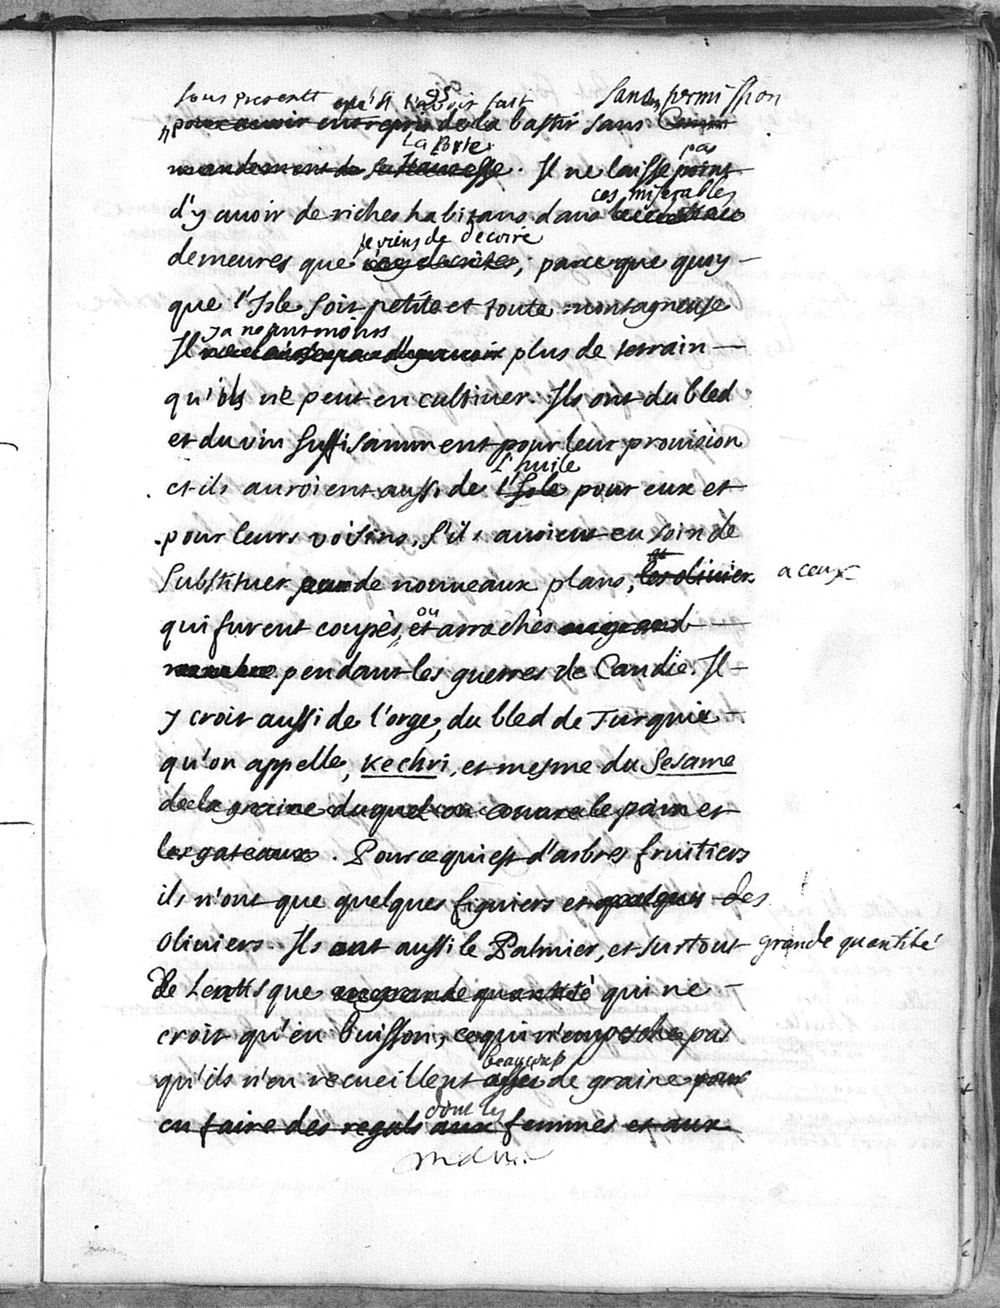 sous pretexte qu'il l'avoit fait sans permission
pour avoir entrepris de la bastir sans Com
La Porte pas
mandement de sa Hautesse. Il ne laisse point
ces miserables
d'y avoir de riches habitans dans
je viens de decrire
demeures que j'ay decrites, parce que quoy
que l'Isle soit petite et toute montagneuse
Il y a neantmoins plus de terrain
qu'ils ne peut en cultiver. Ils ont du bled
et du vin suffisamment pour leur provision
l'huile
et ils auroient aussi de l'Isle pour eux et
pour leurs voisins, s'ils avoient eu soin de
substituer de nouveaux plans, les oliviers a ceux
ou
qui furent coupés, et arrachés en grand
nombre pendant les guerres de Candie. Il
y croit aussi de l'orge, du bled de Turquie
qu'on appelle, Kechri, et mesme du Sesame
de la graine duquel on couvre le pain et
les gateaux. Pour ce qui est d'arbres fruitiers
ils n'ont que quelques figuiers et quelques des
Oliviers. Ils ont aussi le Palmier, et surtout grande quantité
De Lentisque en grande quantité qui ne
croit qu'en buisson, ce qui n'empesche pas
beaucoup
qu'ils n'en recueillent assez de graine pour
dont les
en faire des regals aux femmes et aux